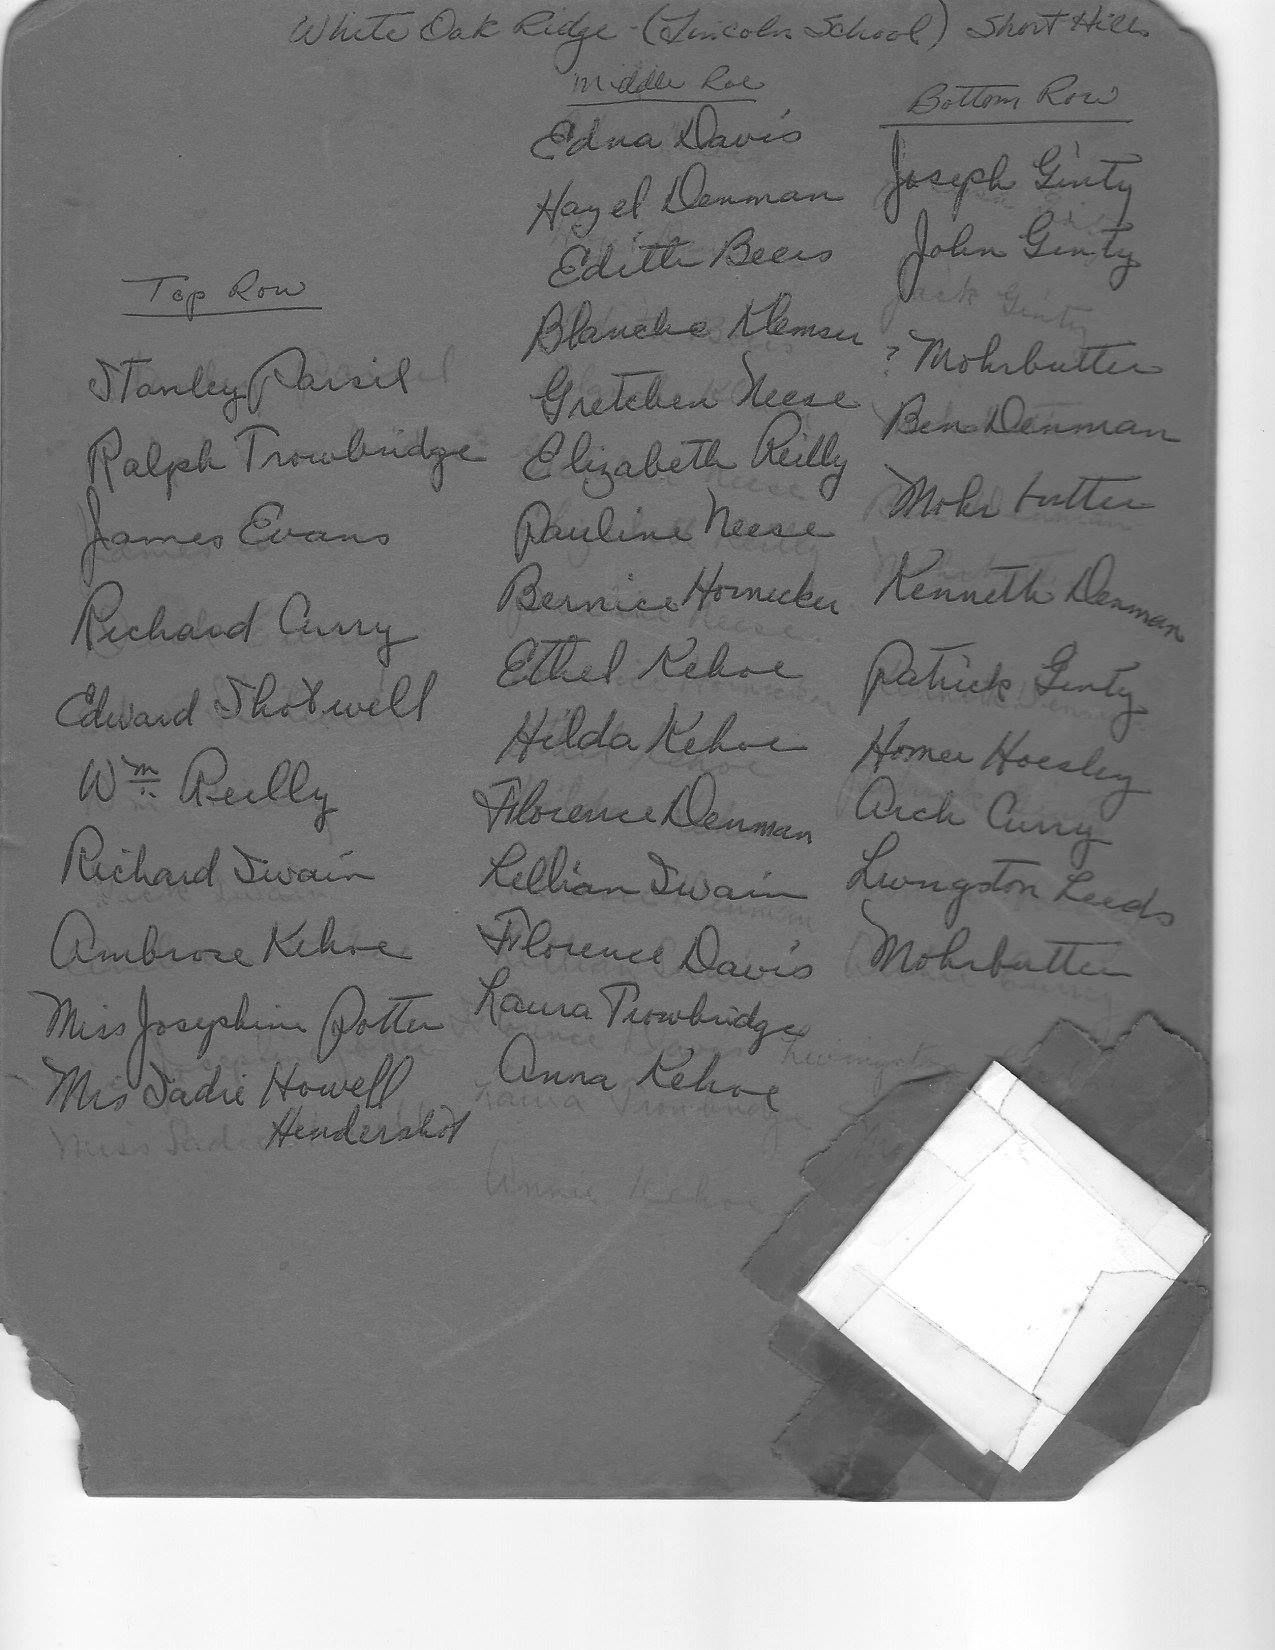 White Oak Ridge - (Lincoln School) Short Hills
Top Row
Stanley Parsil
Ralph Trowbridge
James Evans
Richard Curry
Edward Shotwell
Wm Reilly
Richard Swain
Ambrose Kehoe
Miss Josephine Potter
Mrs Sadie Howell
Hendershot
Middle Row
Edna Davis
Hazel Denman
Edith Beers
Blanche Klemser
Gretchen Neese
Elizabeth Reilly
Pauline Neese
Bernice Hornecker
Ethel Kehoe
Hilda Kehoe
Florence Denman
Lillian Swain
Florence Davis
Laura Trowbridge
Anna Kehoe
Annie Kehoe
Bottom Row
Joseph Ginty
John Ginty
Jack Ginty
? Mohrbutter
Ben Denman
Mohrbutter
Kenneth Denman
Patrick Ginty
Homer Hoesley
Arch Curry
Livingston Leeds
Mohrbutter